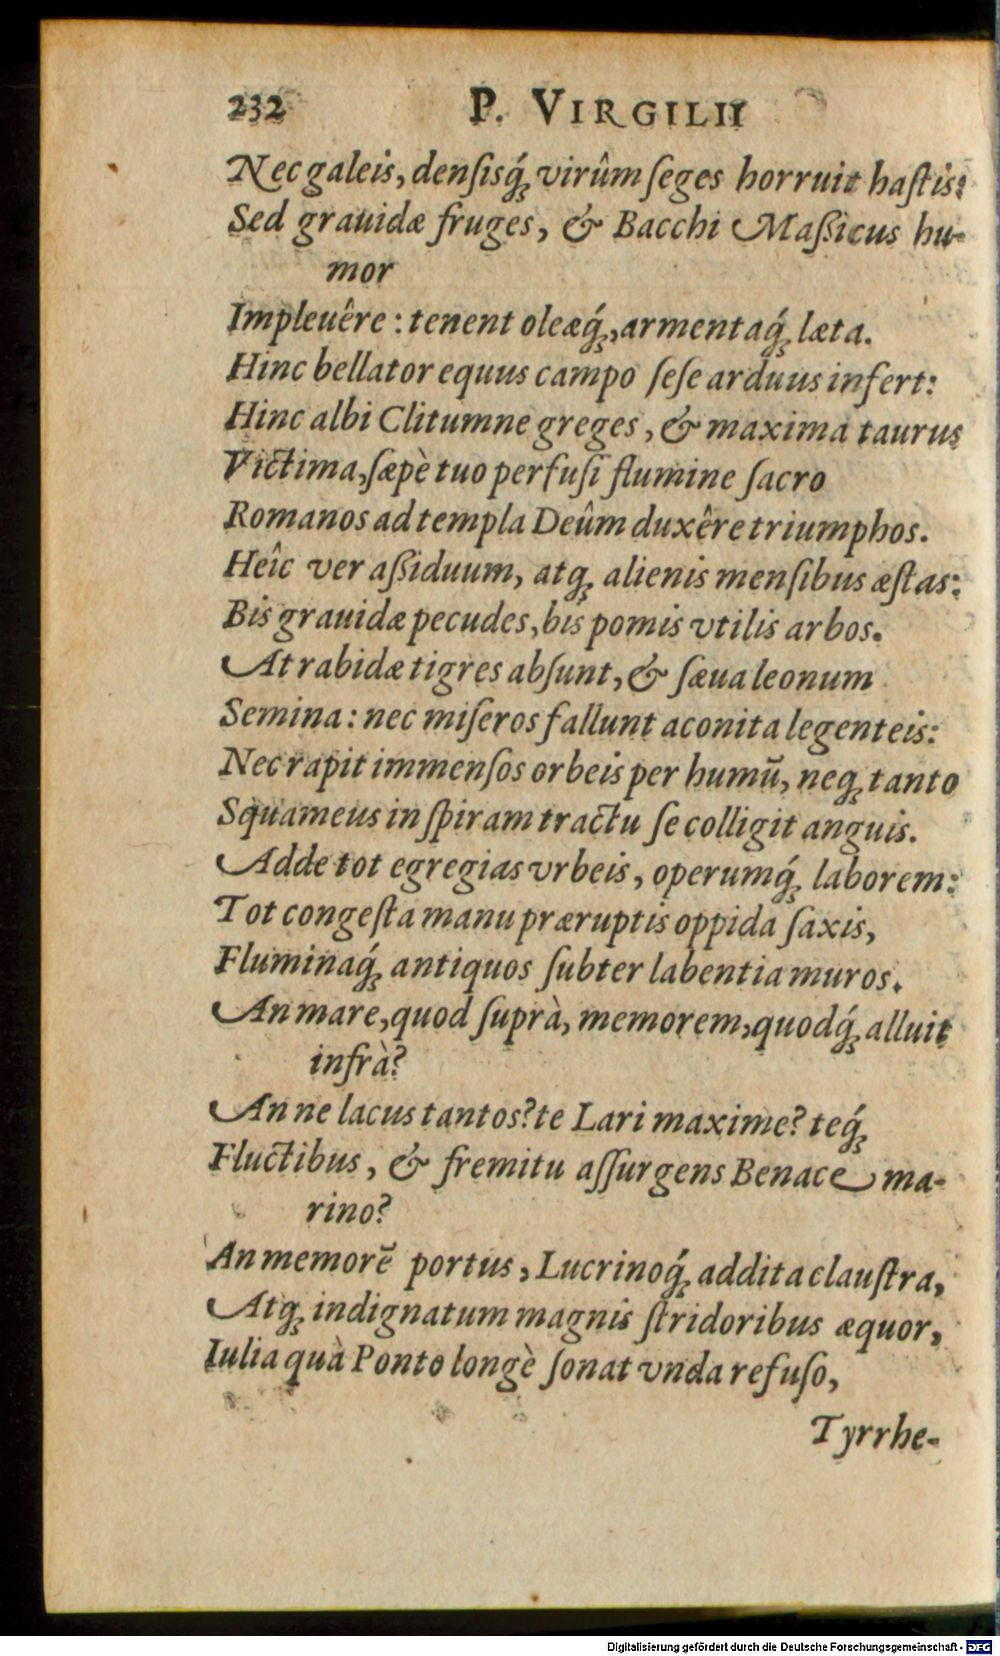 232 P. VIRGILII
Nec galeis, densisq́; virûm seges horruit hastis:
Sed grauidæ fruges, & Bacchi Massicus hu-
mor
Impleuêre: tenent oleæq́;, armentaq́; læta.
Hinc bellator equus campo sese arduus infert:
Hinc albi Clitumne greges, & maxima taurus
Victima, sæpè tuo perfusi flumine sacro
Romanos ad templa Deûm duxêre triumphos.
Heîc ver assiduum, atq; alienis mensibus æstas:
Bis grauidæ pecudes, bis pomis vtilis arbos.
At rabidæ tigres absunt, & sæua leonum
Semina: nec miseros fallunt aconita legenteis:
Nec rapit immensos orbeis per humū, neq; tanto
Squameus in spiram tractu se colligit anguis.
Adde tot egregias vrbeis, operumq́; laborem:
Tot congesta manu præruptis oppida saxis,
Fluminaq́; antiquos subter labentia muros.
An mare, quod suprà, memorem, quodq́; alluit
infrà?
An ne lacus tantos? te Lari maxime? teq́;
Fluctibus, & fremitu assurgens Benace ma-
rino?
An memorē portus, Lucrinoq́; addita claustra,
Atq; indignatum magnis stridoribus æquor,
Iulia quà Ponto longè sonat vnda refuso,
Tyrrhe-
Digitalisierung gefördert durch die Deutsche Forschungsgemeinschaft - DFG